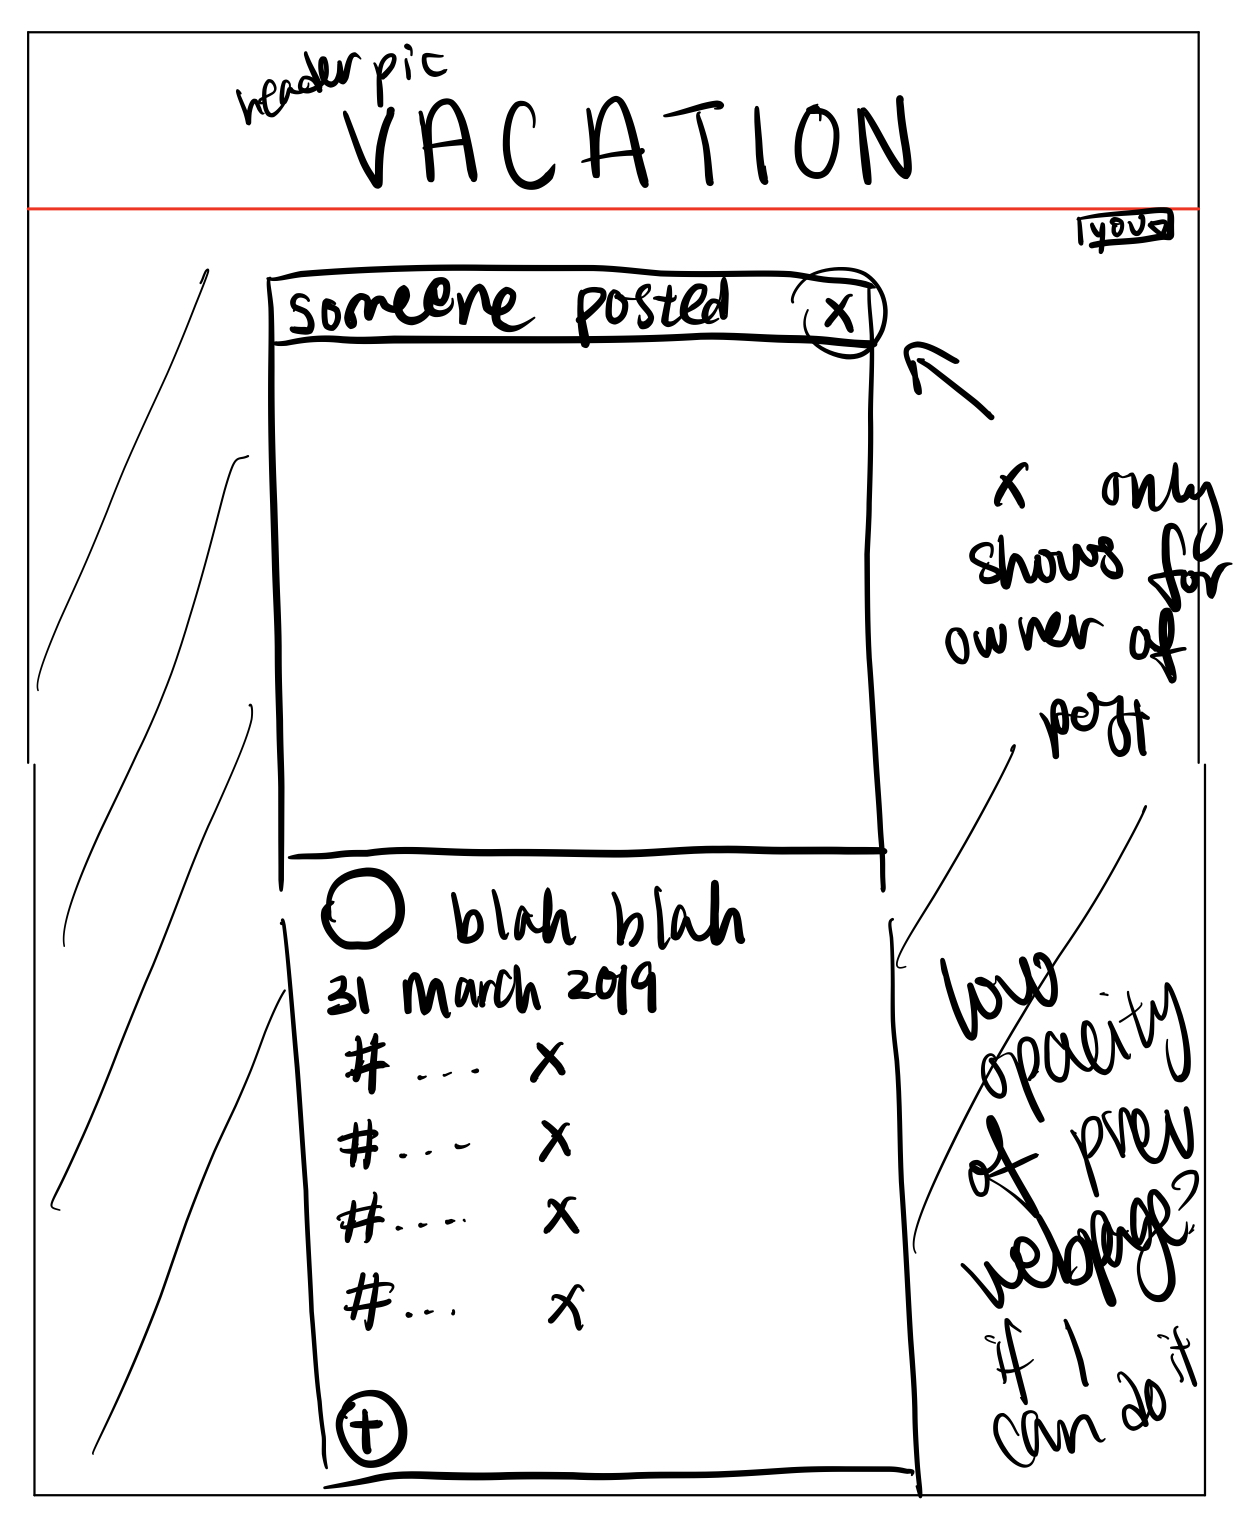 header pic
VACATION
you
someone posted X
X only
shows for
owner of
post
blah blah
31 march 2019
# ... X
# ... X
# .... X
# ... X
+
low
opacity
of prev
webpage?
if I
can do it